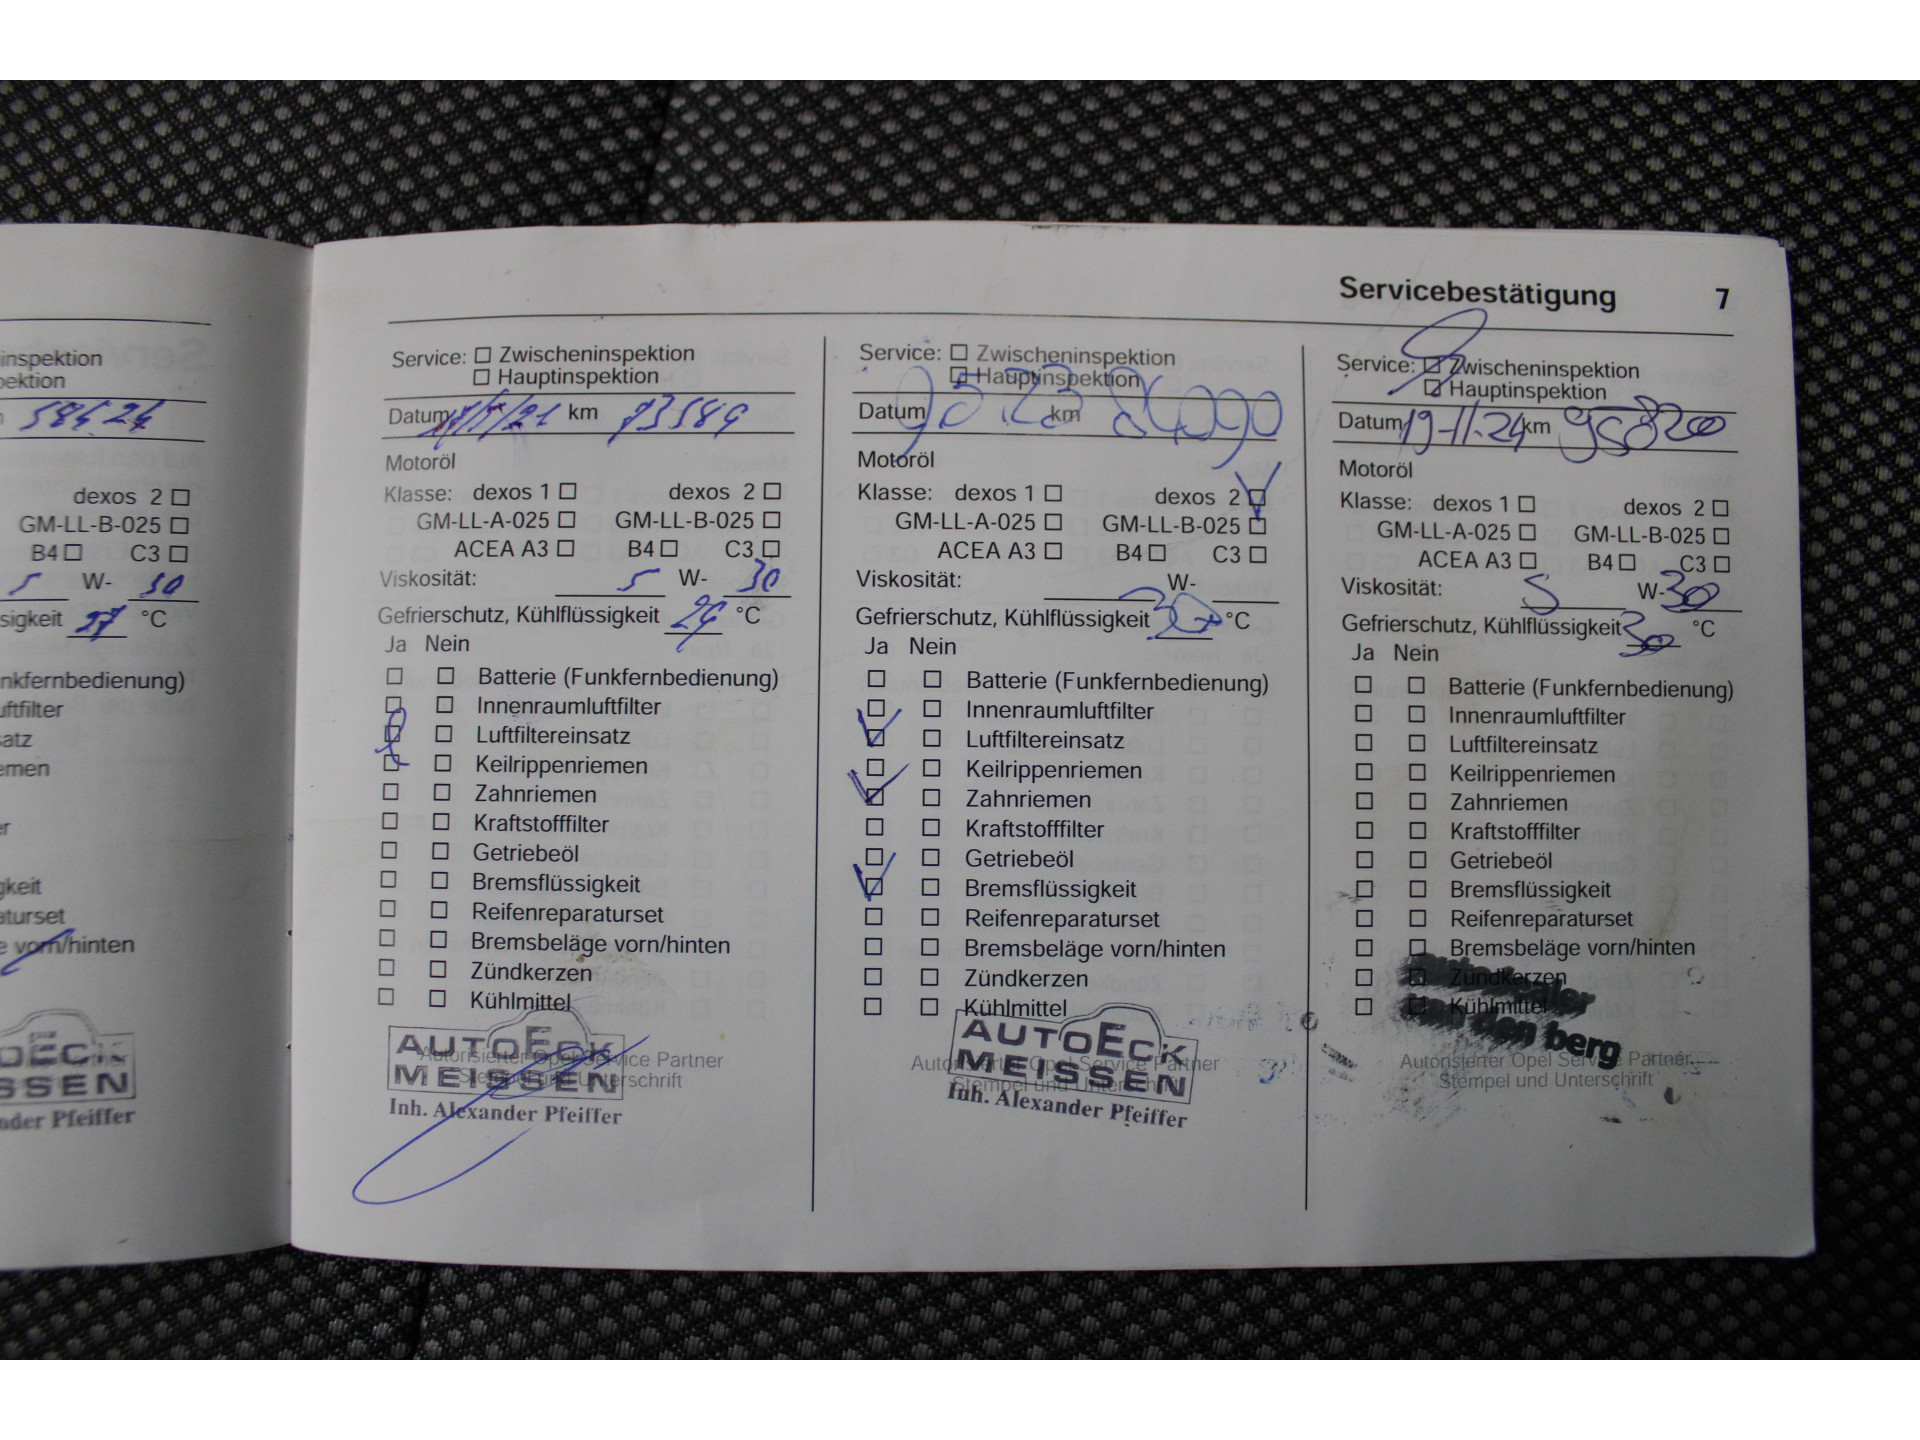 inspektion
pektion
58424
dexos 2
GM-LL-B-025
B4 C3
5 W- 30
sigkeit 27 °C
nkfernbedienung)
uftfilter
satz
emen
er
gkeit
aturset
e vorn/hinten
Servicebestätigung 7
Service: Zwischeninspektion
Hauptinspektion
Datum km 73589
Motoröl
Klasse: dexos 1 dexos 2
GM-LL-A-025 GM-LL-B-025
ACEA A3 B4 C3
Viskosität: 5 W- 30
Gefrierschutz, Kühlflüssigkeit 29 °C
Ja Nein
Batterie (Funkfernbedienung)
Innenraumluftfilter
Luftfiltereinsatz
Keilrippenriemen
Zahnriemen
Kraftstofffilter
Getriebeöl
Bremsflüssigkeit
Reifenreparaturset
Bremsbeläge vorn/hinten
Zündkerzen
Kühlmittel
AUTOECK
MEISSEN
Autorisierter Opel Service Partner
Stempel und Unterschrift
Inh. Alexander Pfeiffer
Service: Zwischeninspektion
Hauptinspektion
Datum 9.5.23 km 84090
Motoröl
Klasse: dexos 1 dexos 2
GM-LL-A-025 GM-LL-B-025
ACEA A3 B4 C3
Viskosität: W-
Gefrierschutz, Kühlflüssigkeit °C
Ja Nein
Batterie (Funkfernbedienung)
Innenraumluftfilter
Luftfiltereinsatz
Keilrippenriemen
Zahnriemen
Kraftstofffilter
Getriebeöl
Bremsflüssigkeit
Reifenreparaturset
Bremsbeläge vorn/hinten
Zündkerzen
Kühlmittel
AUTOECK
MEISSEN
Autorisierter Opel Service Partner
Stempel und Unterschrift
Inh. Alexander Pfeiffer
Service: Zwischeninspektion
Hauptinspektion
Datum 19-11.24 km 95820
Motoröl
Klasse: dexos 1 dexos 2
GM-LL-A-025 GM-LL-B-025
ACEA A3 B4 C3
Viskosität: 5 W- 30
Gefrierschutz, Kühlflüssigkeit 30 °C
Ja Nein
Batterie (Funkfernbedienung)
Innenraumluftfilter
Luftfiltereinsatz
Keilrippenriemen
Zahnriemen
Kraftstofffilter
Getriebeöl
Bremsflüssigkeit
Reifenreparaturset
Bremsbeläge vorn/hinten
Zündkerzen
Kühlmittel
den berg
Autorisierter Opel Service Partner
Stempel und Unterschrift